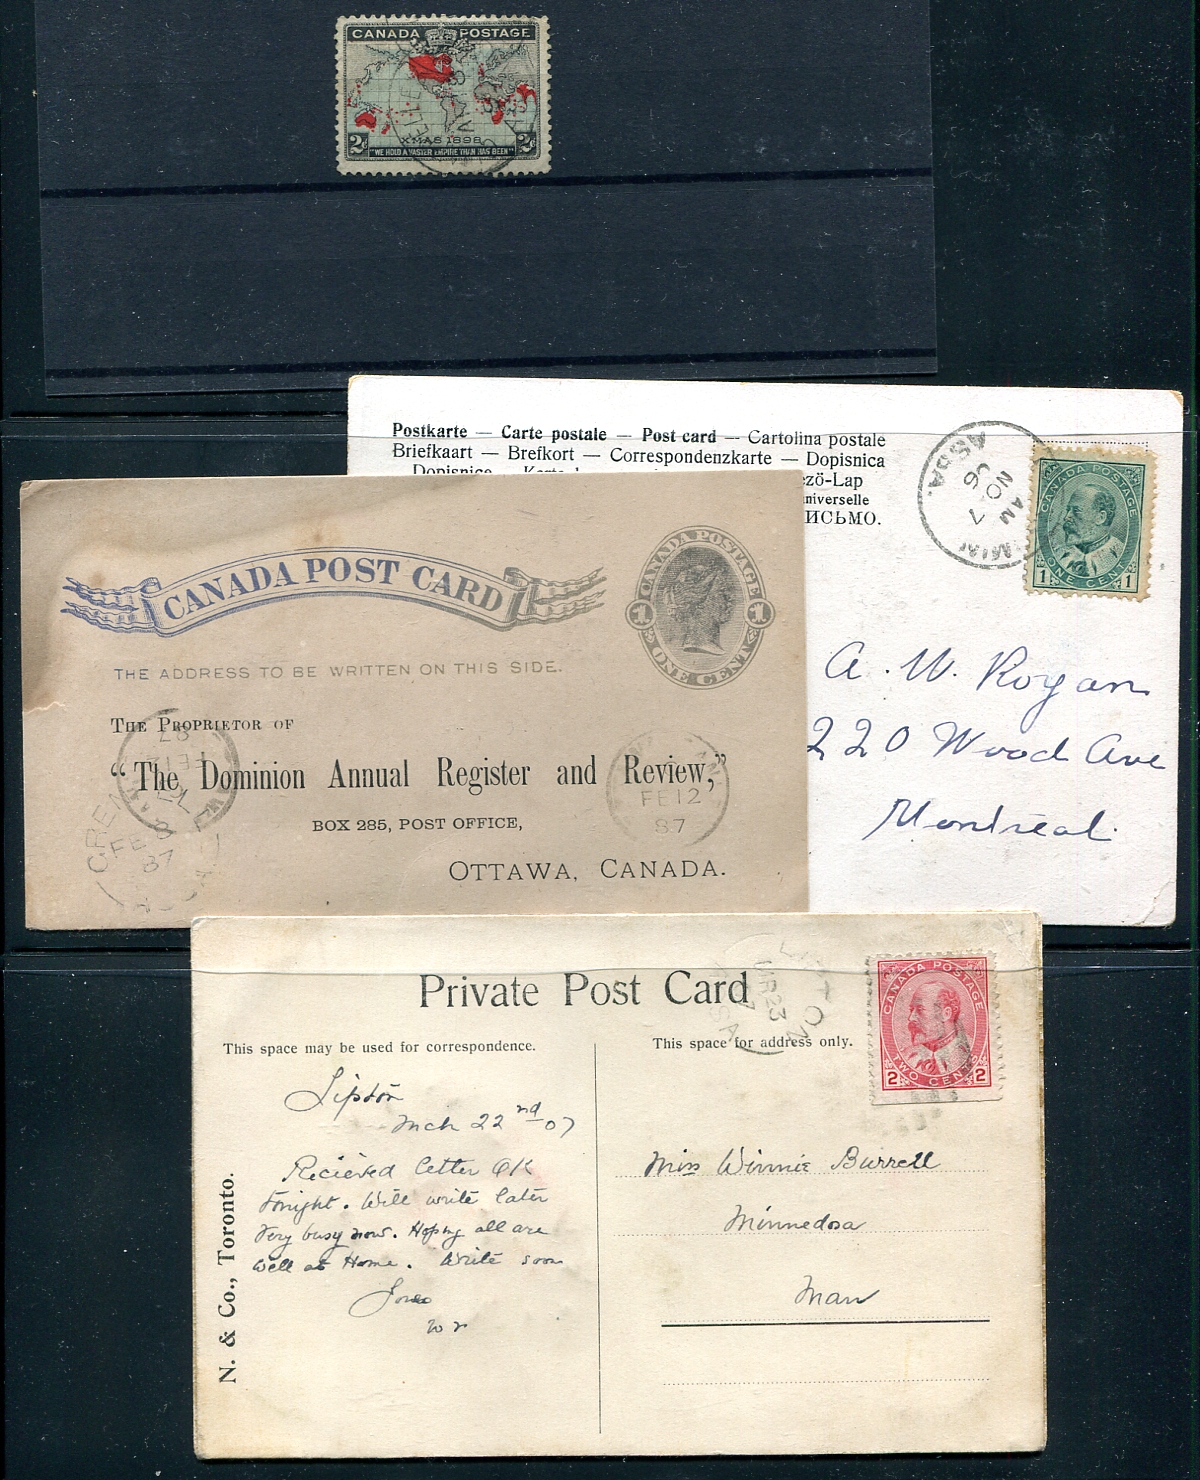 CANADA POSTAGE
XMAS 1898
2c 2c
"WE HOLD A VASTER EMPIRE THAN HAS BEEN"
Postkarte — Carte postale — Post card — Cartolina postale
Briefkaart — Brefkort — Correspondenzkarte — Dopisnica
Dopisnice
ező-Lap
niverselle
ИСЬМО.
ASSA.
AM
NO 7
06
CANADA POSTAGE
1 ONE CENT 1
A. W. Rogan
220 Wood Ave
Montreal.
CANADA POST CARD
CANADA POSTAGE
1 1
ONE CENT
THE ADDRESS TO BE WRITTEN ON THIS SIDE.
THE PROPRIETOR OF
"The Dominion Annual Register and Review,"
BOX 285, POST OFFICE,
OTTAWA, CANADA.
FE 12
87
FE 8
87
Private Post Card
CANADA POSTAGE
2 TWO CENTS 2
LIPTON
MR 23
07
ASSA
This space may be used for correspondence.
This space for address only.
Lipton
Mch 22nd 07
Recieved letter OK
tonight. Will write later
Very busy now. Hoping all are
well at Home. Write soon
Miss Winnie Burrell
Minnedosa
Man
N. & Co., Toronto.